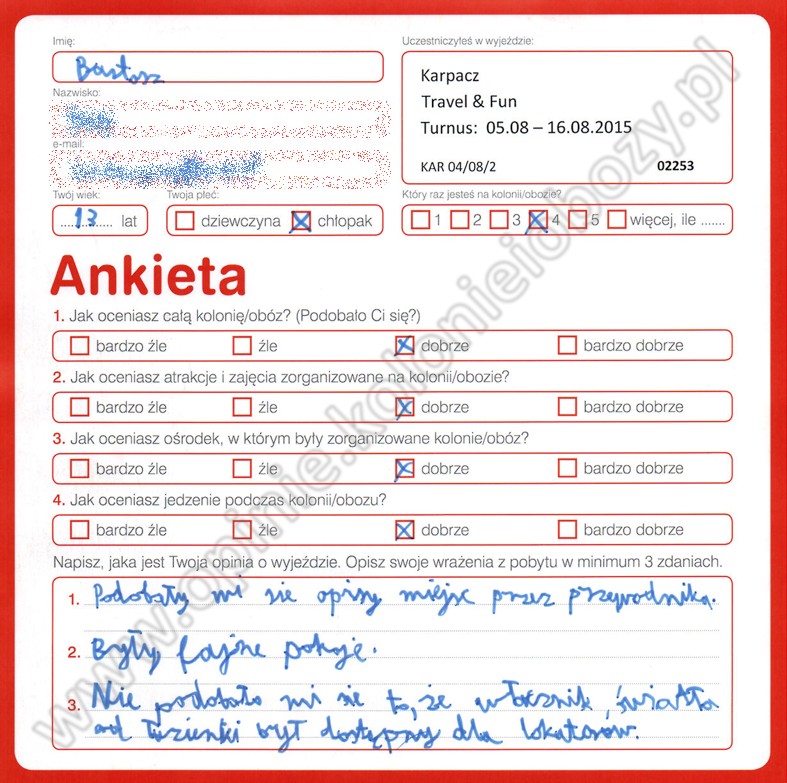 Imię:
Bartosz
Nazwisko:
e-mail:
Twój wiek:
13 lat
Twoja płeć:
dziewczyna chłopak
Uczestniczyłeś w wyjeździe:
Karpacz
Travel & Fun
Turnus: 05.08 – 16.08.2015
KAR 04/08/2 02253
Który raz jesteś na kolonii/obozie?
1 2 3 4 5 więcej, ile .......
Ankieta
1. Jak oceniasz całą kolonię/obóz? (Podobało Ci się?)
bardzo źle źle dobrze bardzo dobrze
2. Jak oceniasz atrakcje i zajęcia zorganizowane na kolonii/obozie?
bardzo źle źle dobrze bardzo dobrze
3. Jak oceniasz ośrodek, w którym były zorganizowane kolonie/obóz?
bardzo źle źle dobrze bardzo dobrze
4. Jak oceniasz jedzenie podczas kolonii/obozu?
bardzo źle źle dobrze bardzo dobrze
Napisz, jaka jest Twoja opinia o wyjeździe. Opisz swoje wrażenia z pobytu w minimum 3 zdaniach.
1. Podobały mi sie opisy miejsc przez przewodnika.
2. Były fajne pokoje.
3. Nie podobało mi sie to, że włacznik światła
od łazienki był dostępny dla lokatorów.
www.opinie.kolonieiobozy.pl